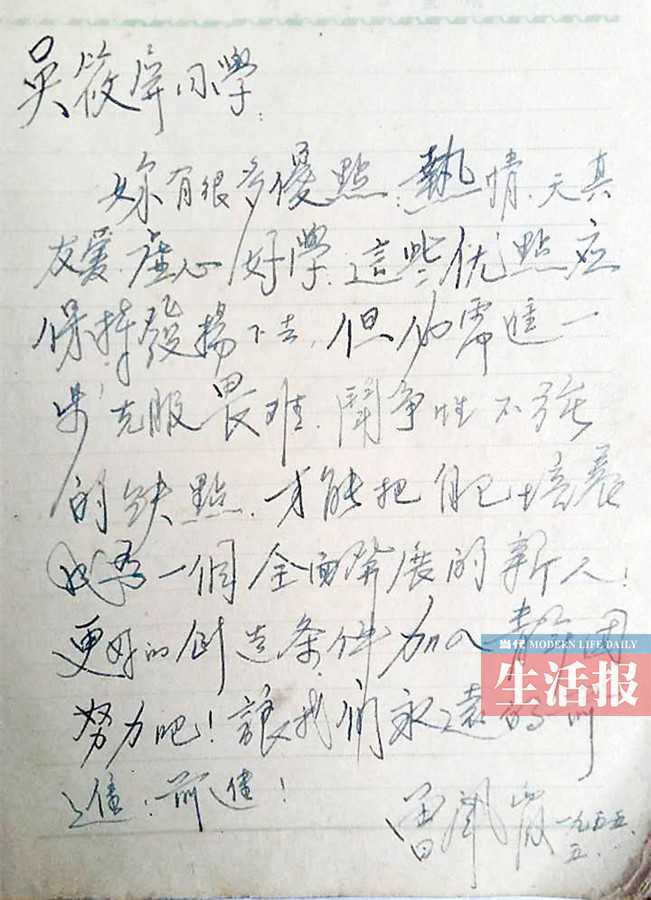 吴筱屏同學：
妳有很多優點：熱情、天真
友爱、虚心好學，這些优點应
保持發揚下去，但必需進一
步克服畏难、鬪争性不强
的缺點，才能把自己培養
成為一個全面發展的新人！
更好的創造条件加入青年團
努力吧！讓我們永遠的向
前進！前進！
當代 MODERN LIFE DAILY
生活报
曾
一九五五.
五.